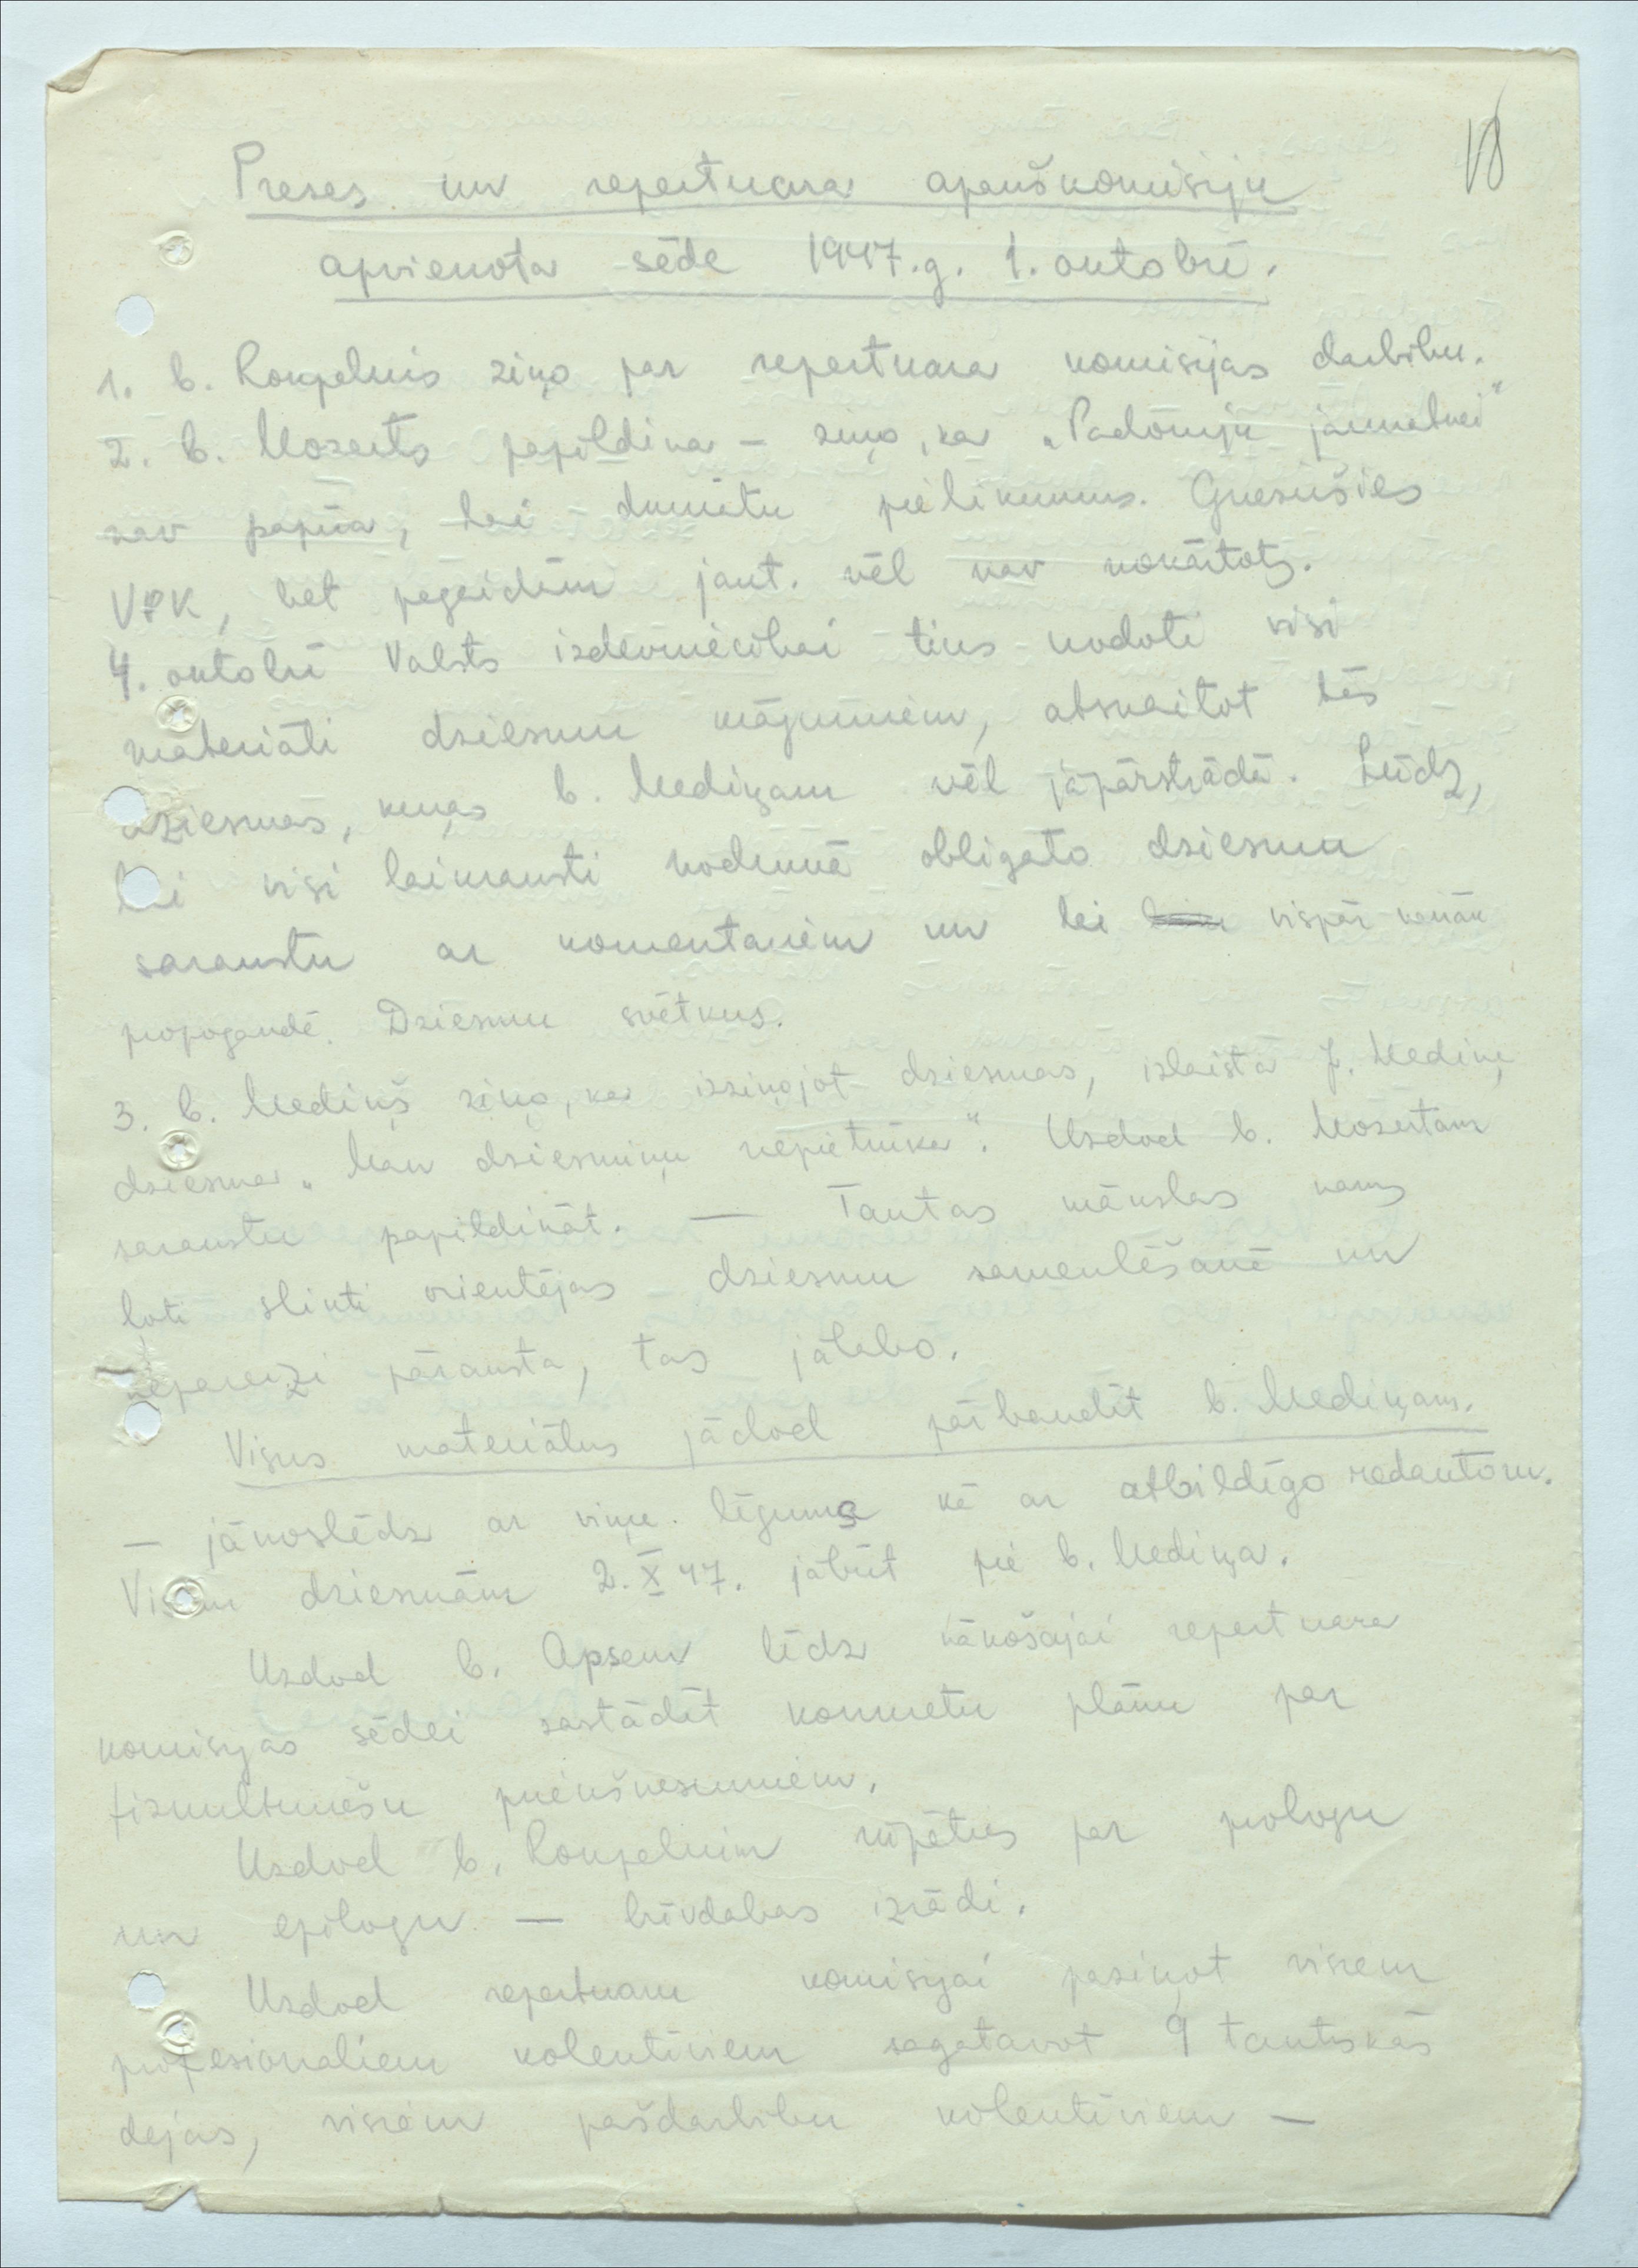 18
Preses un repertuara apakškomisiju
apvienota sēde 1947.g. 1. oktobrī.
1. b. Rokpelnis ziņo par repertuara komisijas darbību.
2. b. Mozerts papildina – ziņo, ka „Padomju jaunatnei"
nav papīra, lai drukātu pielikumus. Griezušies
VPK, bet pagaidām jaut. vēl nav nokārtots.
4. oktobrī Valsts izdevniecībai tiks nodoti visi
materiāli dziesmu krājumiem, atskaitot tās
dziesmas, kuŗas b. Mediņam vēl jāpārstrādā. Lūdz,
lai visi laikraksti nodrukā obligāto dziesmu
sarakstu ar komentariem un lai vispār vairāk
propogandē Dziesmu svētkus.
3. b. Mediņš ziņo, ka izziņojot dziesmas, izlaista J. Mediņa
dziesma „Man dziesmiņu nepietrūka". Uzdod b. Mozertam
sarakstu papildināt. — Tautas mākslas nams
ļoti slikti orientējas dziesmu sameklēšanā un
nepareizi pāraksta, tas jālabo.
Visus materiālus jādod pārbaudīt b. Mediņam.
– jānoslēdz ar viņu līgums kā ar atbildīgo redaktoru.
Visām dziesmām 2. X 47. jābūt pie b. Mediņa.
Uzdod b. Apsem līdz nākošajai repertuara
komisijas sēdei sastādīt konkrētu plānu par
fizkultūriešu priekšnesumiem.
Uzdod b. Rokpelnim rūpēties par prologu
un epilogu — brīvdabas izrādi.
Uzdod repertuara komisijai paziņot visiem
profesionaliem kolektīviem sagatavot 9 tautiskās
dejas, visiem pašdarbību kolektīviem –